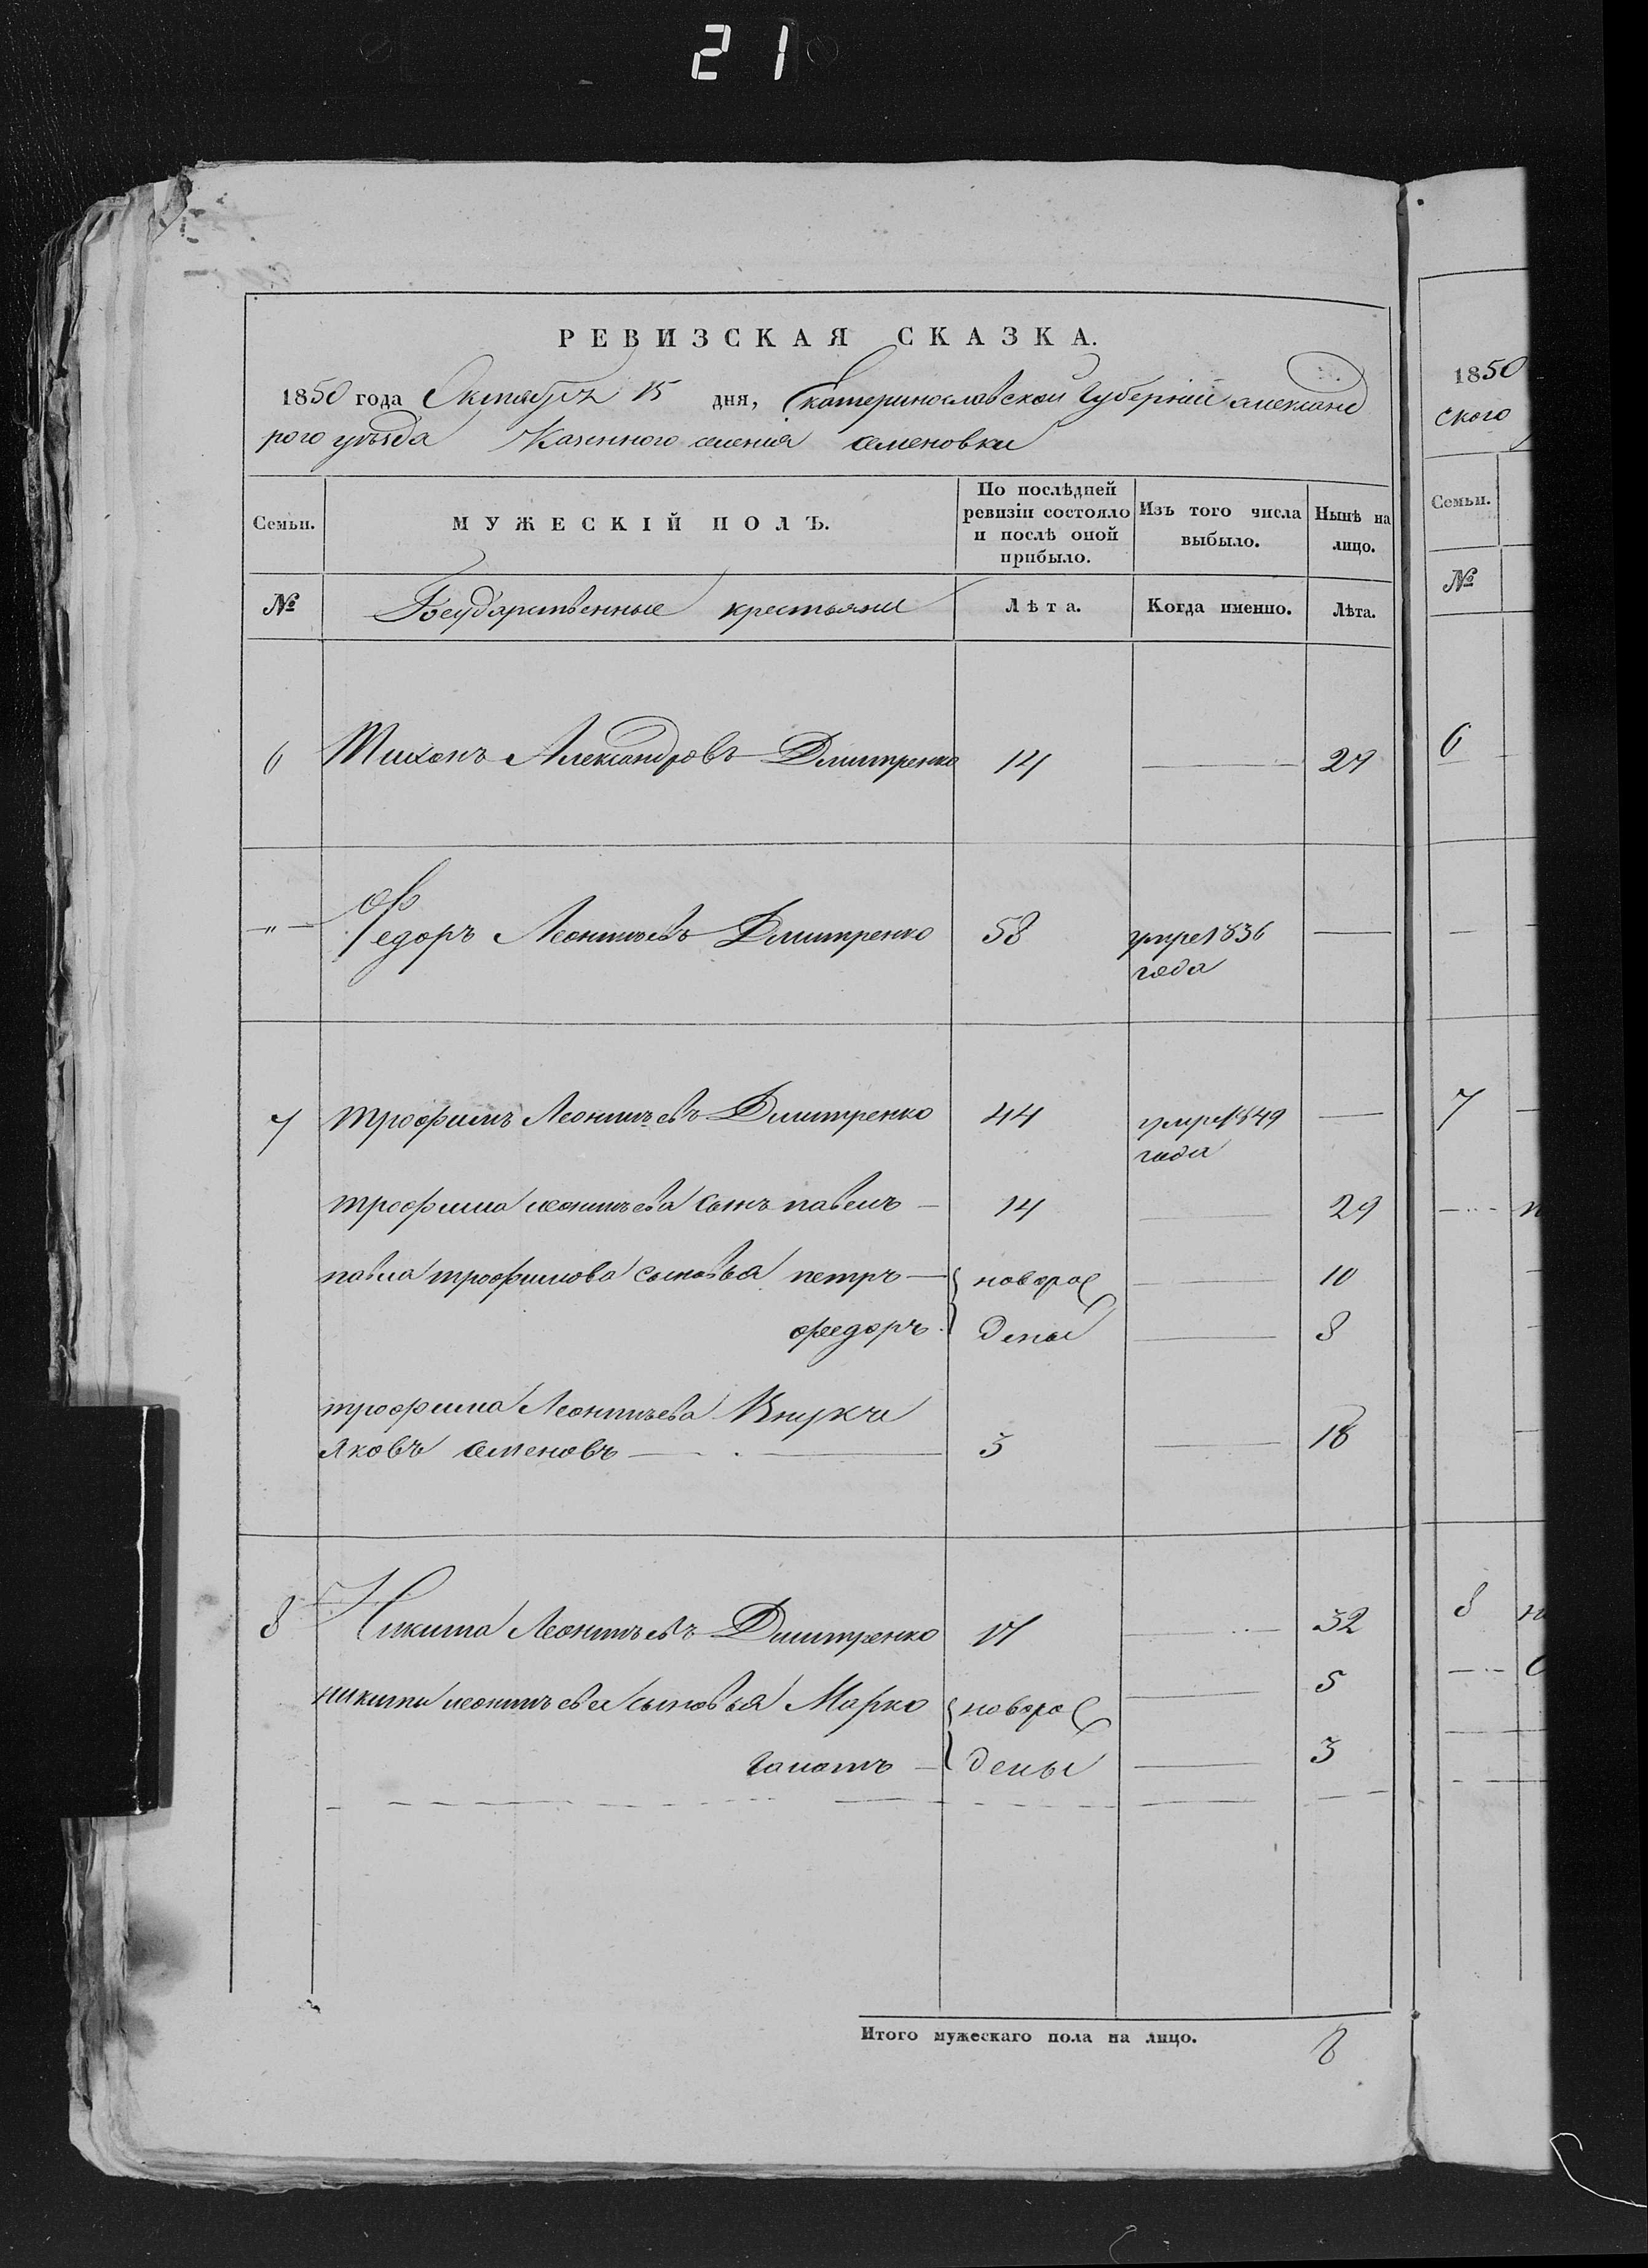 21
РЕВИЗСКАЯ СКАЗКА.
1850 года Октября 15 дня, Екатеринославской Губерніи александ
рого уѣзда Казенного селенія семеновки
Семьи.
МУЖЕСКІЙ ПОЛЪ.
По послѣдней ревизіи состояло и послѣ оной прибыло.
Изъ того числа выбыло.
Нынѣ на лицо.
№ Государственные крестьяни Лѣта. Когда именно. Лѣта.
6 Тихонъ Александровъ Дмитренко 14 29
" Федоръ Леонтьевъ Дмитренко 58 умре 1836
года
7 трофимъ Леонтьевъ Дмитренко 44 умре 1849
года
трофима леонтьева сынъ павелъ 14 29
павла трофимова сыновья петръ новорож 10
федоръ дены 8
трофима Леонтьева Внукъ
яковъ семеновъ 3 18
8 Никита Леонтьевъ Дмитренко 17 32
никиты леонтьева сыновья Марко новорож 5
дены 3
Итого мужескаго пола на лицо. 8
1850
ского
Семьи.
№
6
7
8